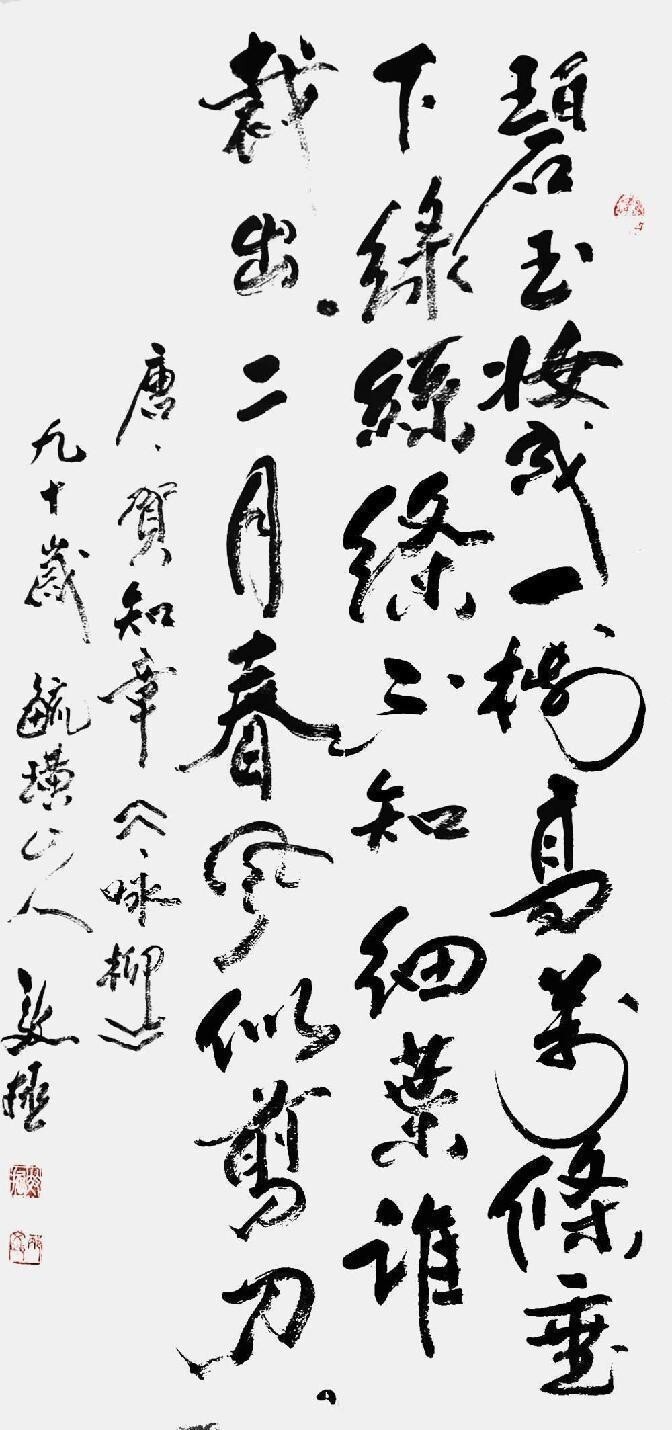 碧玉妆成一樹高萬條垂
下綠絲絛不知細葉誰
裁出。二月春風似剪刀。
唐、賀知章《咏柳》
九十歲 毓璜山人